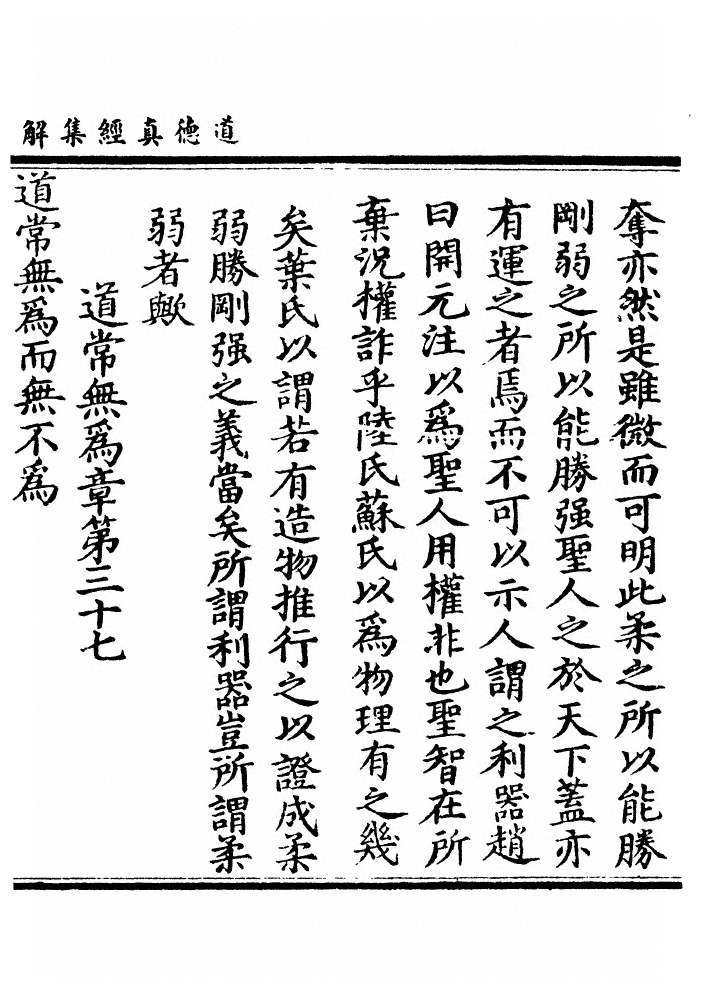 道德真經集解
奪亦然是雖微而可明此柔之所以能勝
剛弱之所以能勝强聖人之於天下蓋亦
有運之者焉而不可以示人謂之利器趙
曰開元注以爲聖人用權非也聖智在所
棄況權詐乎陸氏蘇氏以爲物理有之幾
矣葉氏以謂若有造物推行之以證成柔
弱勝剛强之義當矣所謂利器豈所謂柔
弱者歟
道常無爲章第三十七
道常無爲而無不爲